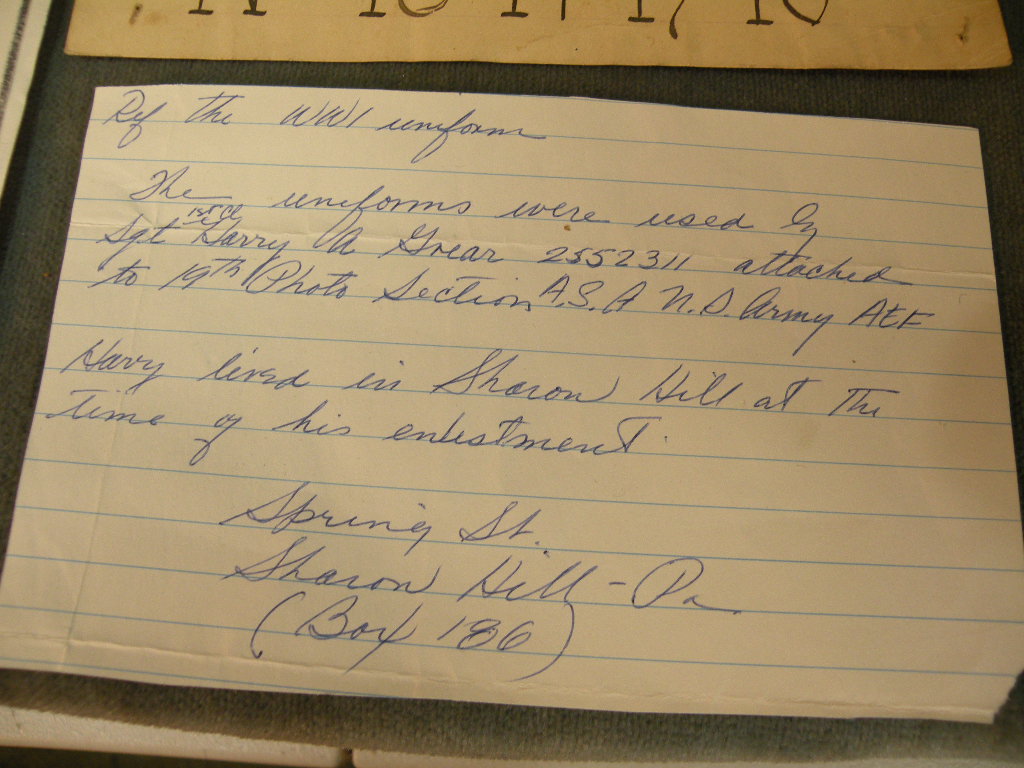 Ref the WWI uniform
The uniforms were used by
1st Cl
Sgt Harry A Grear 2552311 attached
to 19th Photo Section A.S.A N.S. Army AEF
Harry lived in Sharon Hill at the
time of his enlistment.
Spring St.
Sharon Hill - Pa.
(Box 186)